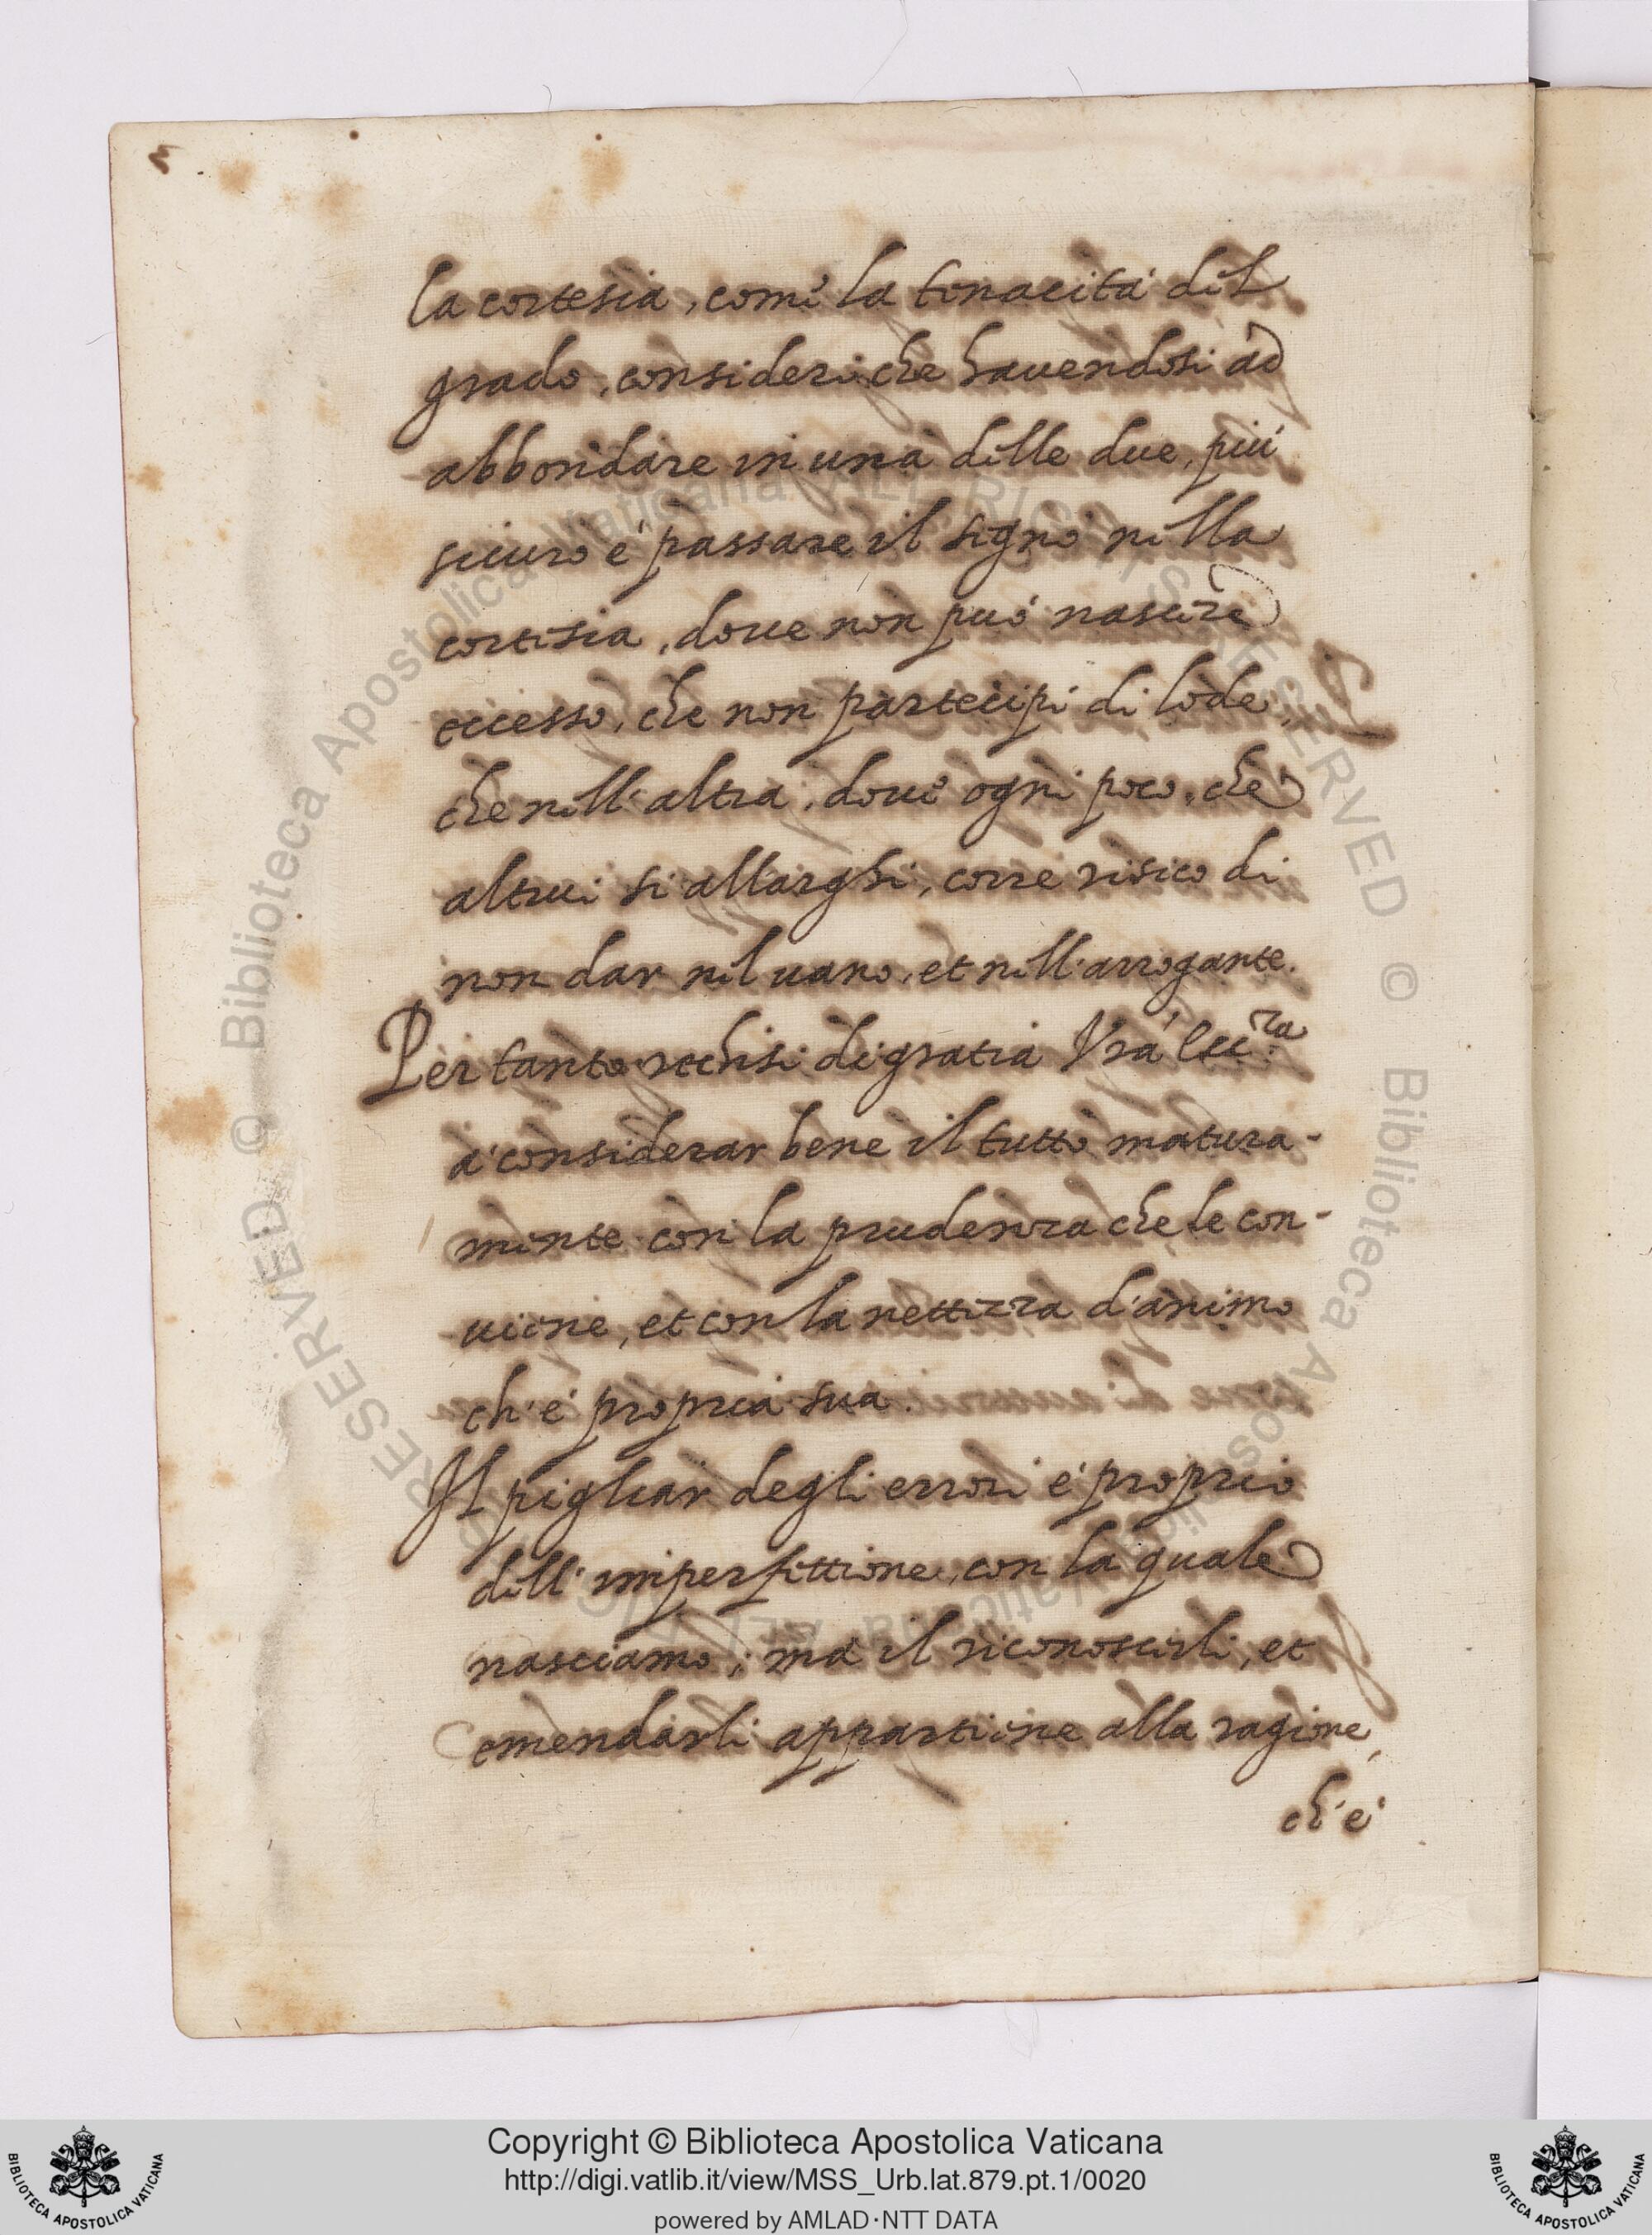 la cortesia, come la tenacità del
grado, consideri che havendosi ad
abbondare in una delle due, più
sicuro è passare il segno nella
cortesia, dove non può nascere
eccesso, che non partecipi di lode,
che nell'altra, dove ogni poco, che
altrui si allarghi, corre risico di
non dar nel vano, et nell'arrogante.
Per tanto rechisi di gratia Vra Ecc.za
a' considerar bene il tutto matura-
mente con la prudenza che le con-
viene, et con la nettezza d'animo
ch'è propria sua.
Il pigliar degli errori è proprio
dell'imperfettione, con la quale
nasciamo; ma il riconoscerli, et
emendarli appartiene alla ragione,
ch'è
Copyright © Biblioteca Apostolica Vaticana
http://digi.vatlib.it/view/MSS_Urb.lat.879.pt.1/0020
powered by AMLAD·NTT DATA
BIBLIOTECA APOSTOLICA VATICANA
BIBLIOTECA APOSTOLICA VATICANA